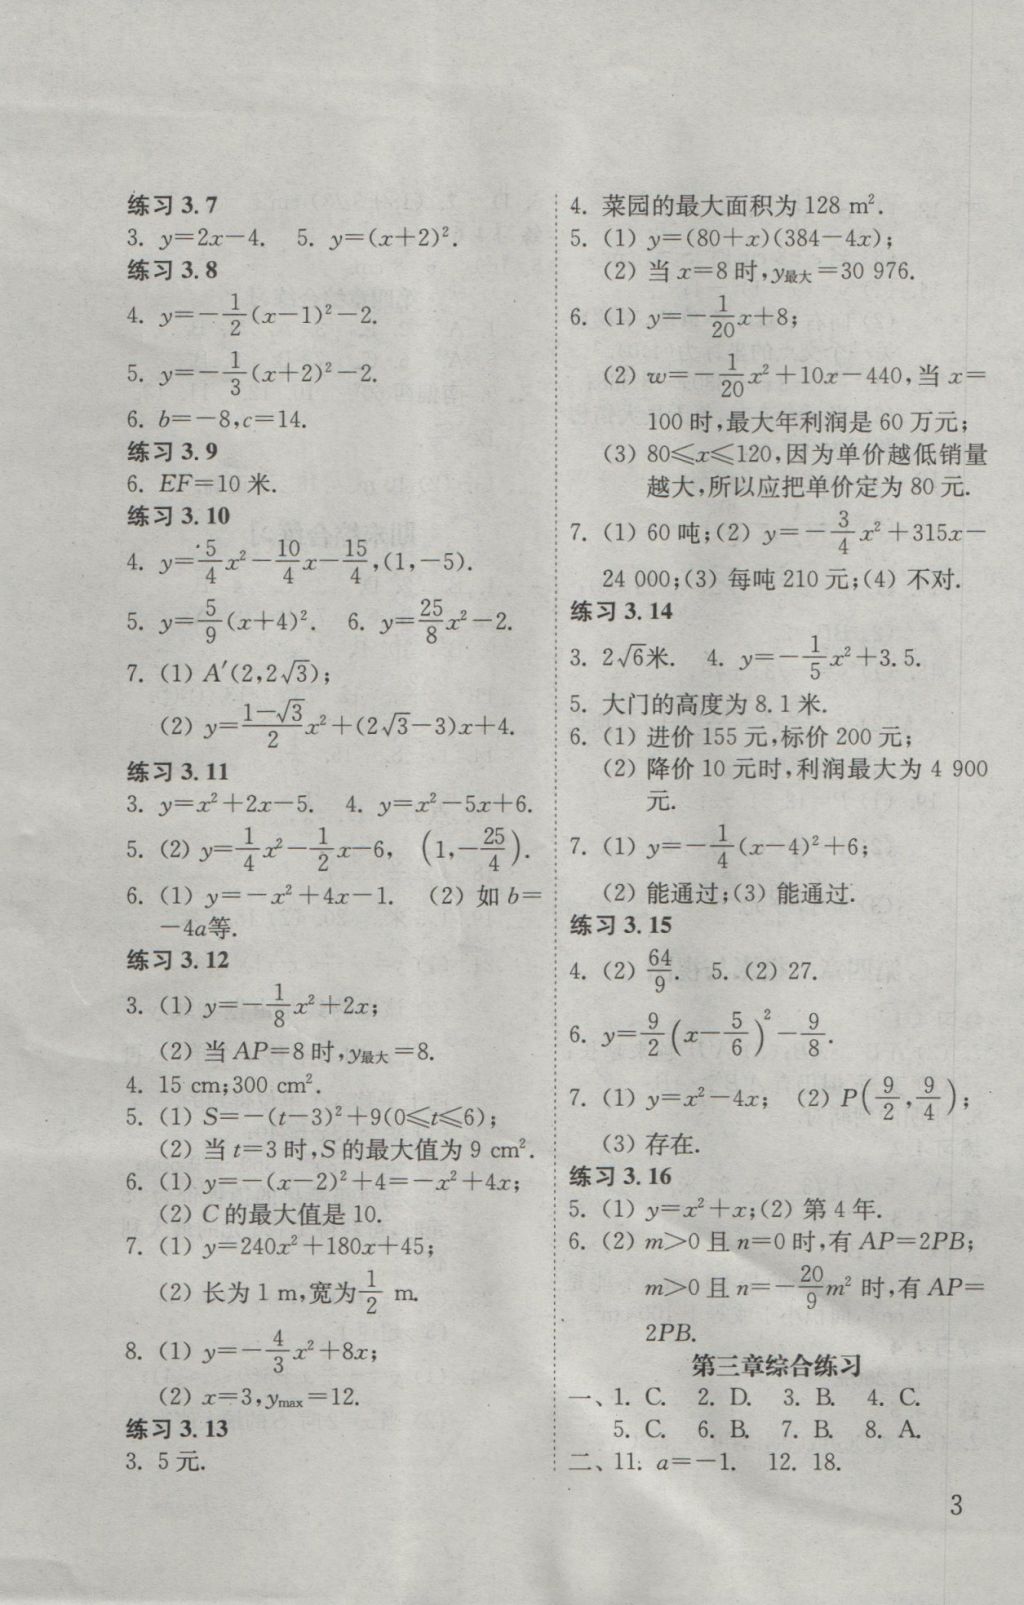 练习 3. 7
3. y=2x−4.  5. y=(x+2)².
练习 3. 8
4. y=−1/2(x−1)²−2.
5. y=−1/3(x+2)²−2.
6. b=−8,c=14.
练习 3. 9
6. EF=10 米.
练习 3. 10
4. y=5/4x²−10/4x−15/4,(1,−5).
5. y=5/9(x+4)².  6. y=25/8x²−2.
7. (1) A′(2,2√3);
(2) y=(1−√3)/2x²+(2√3−3)x+4.
练习 3. 11
3. y=x²+2x−5.  4. y=x²−5x+6.
5. (2) y=1/4x²−1/2x−6, (1,−25/4).
6. (1) y=−x²+4x−1.  (2) 如 b=
−4a等.
练习 3. 12
3. (1) y=−1/8x²+2x;
(2) 当 AP=8 时,y最大=8.
4. 15 cm;300 cm².
5. (1) S=−(t−3)²+9(0⩽t⩽6);
(2) 当 t=3 时,S 的最大值为 9 cm².
6. (1) y=−(x−2)²+4=−x²+4x;
(2) C 的最大值是 10.
7. (1) y=240x²+180x+45;
(2) 长为 1 m,宽为1/2 m.
8. (1) y=−4/3x²+8x;
(2) x=3,ymax=12.
练习 3. 13
3. 5 元.
4. 菜园的最大面积为 128 m².
5. (1) y=(80+x)(384−4x);
(2) 当 x=8 时,y最大=30 976.
6. (1) y=−1/20x+8;
(2) w=−1/20x²+10x−440,当 x=
100 时,最大年利润是 60 万元;
(3) 80⩽x⩽120,因为单价越低销量
越大,所以应把单价定为 80 元.
7. (1) 60 吨;(2) y=−3/4x²+315x−
24 000;(3) 每吨 210 元;(4) 不对.
练习 3. 14
3. 2√6米.  4. y=−1/5x²+3. 5.
5. 大门的高度为 8. 1 米.
6. (1) 进价 155 元,标价 200 元;
(2) 降价 10 元时,利润最大为 4 900
元.
7. (1) y=−1/4(x−4)²+6;
(2) 能通过;(3) 能通过.
练习 3. 15
4. (2) 64/9.  5. (2) 27.
6. y=9/2(x−5/6)²−9/8.
7. (1) y=x²−4x;  (2) P(9/2,9/4);
(3) 存在.
练习 3. 16
5. (1) y=x²+x;(2) 第 4 年.
6. (2) m>0 且 n=0 时,有 AP=2PB;
m>0 且 n=−20/9m² 时,有 AP=
2PB.
第三章综合练习
一、1. C.  2. D.  3. B.  4. C.
5. C.  6. B.  7. B.  8. A.
二、11. a=−1.  12. 18.
3